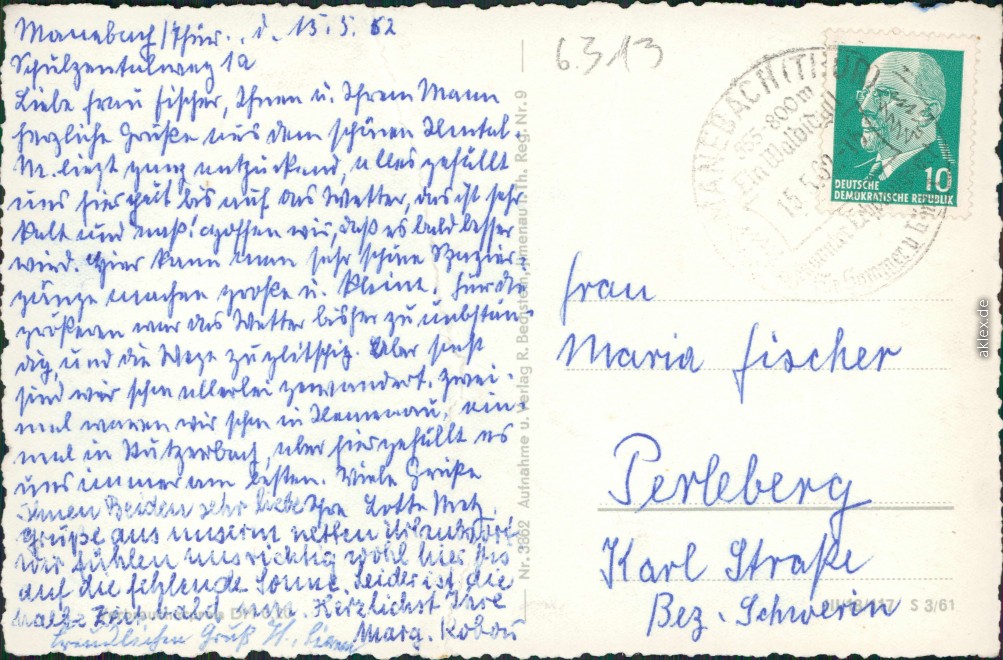 Manebach/Thür., d. 15.5.62
Schulzentalweg 1a
Liebe Frau Fischer, Ihnen u. Ihrem Mann
herzliche Grüße aus dem schönen Ilmtal.
M. liegt ganz entzückend, alles gefällt
uns hier gut bis auf das Wetter, das ist sehr
kalt und naß! Hoffen wir, daß es bald besser
wird. Hier kann man sehr schöne Spazier-
gänge machen große u. kleine. Für die
größeren war das Wetter bisher zu unbestän-
dig, und die Wege zu glitschig. Aber sonst
sind wir schon allerlei gewandert, zwei-
mal waren wir schon in Ilmenau, ein-
mal in Stützerbach, aber hier gefällt es
uns immer am besten. Viele Grüße
Ihnen Beiden sehr liebe Ihre Lotte Metz.
Grüße aus unserm netten Urlaubsort
Wir fühlen uns richtig wohl hier bis
auf die fehlende Sonne. Leider ist die
halbe Zeit bald um. Herzlichst Ihre
Marg.
freundlichen Gruß H.
Nr. 3862 Aufnahme u. Verlag R. Bechstein, Ilmenau i. Th. Reg.-Nr. 9
6.313
MANEBACH (THÜR)
-800m
Ein Waldidyll
15.5.62
Sommer u.
DEUTSCHE
DEMOKRATISCHE REPUBLIK
10
Frau
Maria Fischer
Perleberg
Karl Straße
Bez. Schwerin
S 3/61
aklex.de